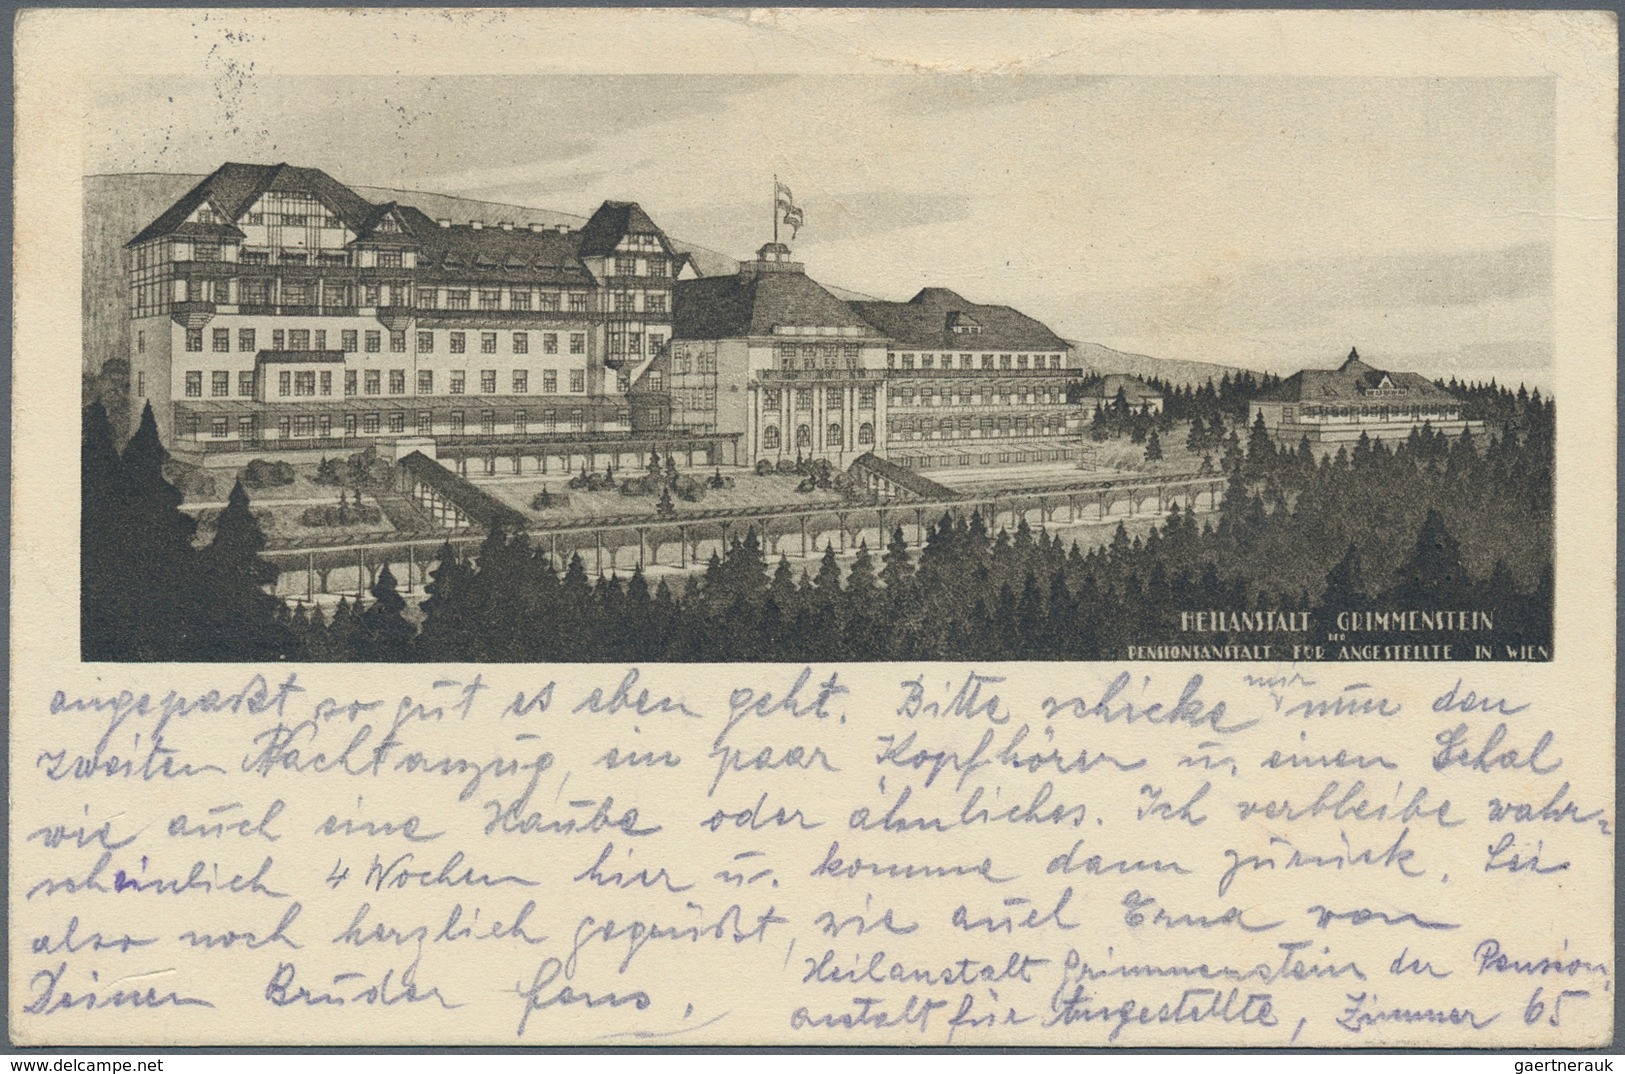 HEILANSTALT GRIMMENSTEIN
DER
PENSIONSANSTALT FÜR ANGESTELLTE IN WIEN
angepaßt so gut es eben geht. Bitte schicke mir nun den
zweiten Nachtanzug, ein paar Kopfhörer u. einen Schal
wie auch eine Haube oder ähnliches. Ich verbleibe wahr-
scheinlich 4 Wochen hier u. komme dann zurück. Sei
also noch herzlich gegrüßt, wie auch Erna von
Deinen Bruder
Heilanstalt Grimmenstein der Pension
anstalt für Angestellte, Zimmer 65
www.delcampe.net
gaertnerauk